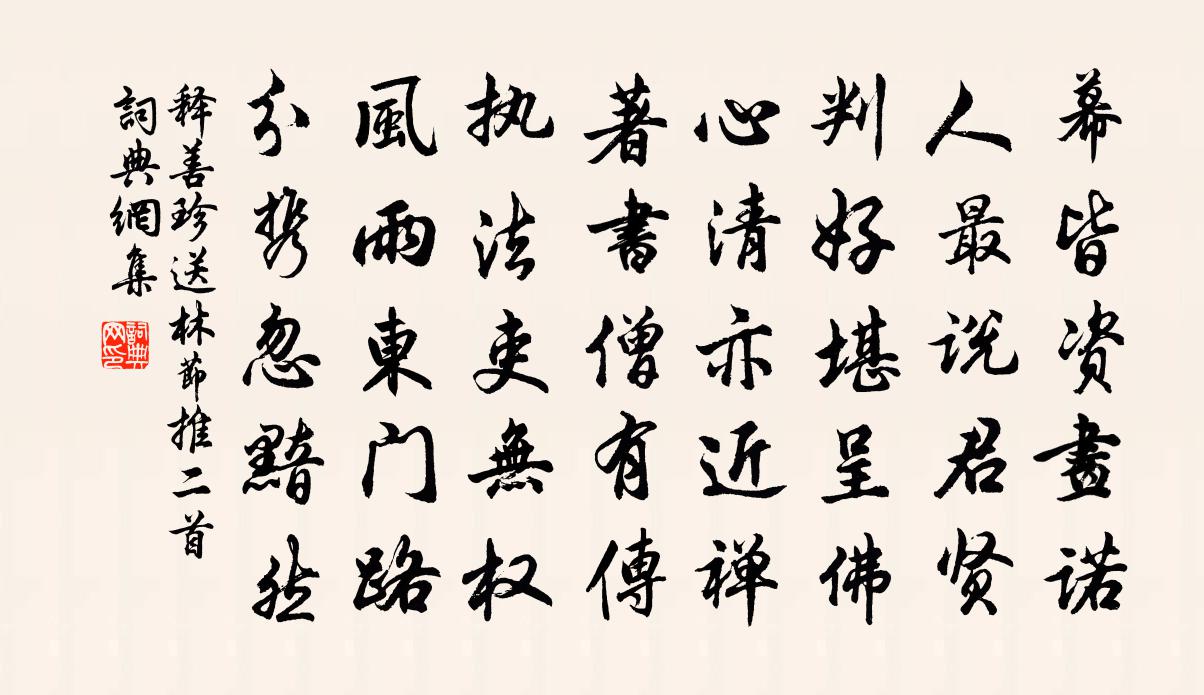 幕皆资畫诺
人最说君贤
判好堪呈佛
心清亦近禅
著書僧有傳
执法吏無权
風雨東门路
分携忽黯然
释善珍送林節推二首
詞典網集
詞典网印